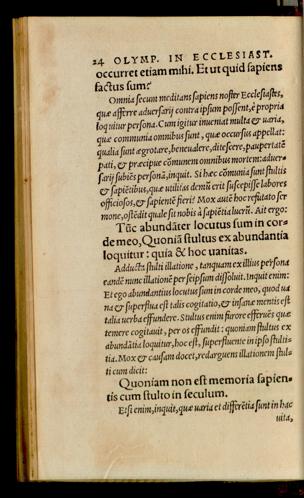 24 OLYMP. IN ECCLESIAST.
occurret etiam mihi. Et ut quid sapiens
factus sum?
Omnia secum meditans sapiens noster Ecclesiastes,
quæ afferre adversarij contra ipsum possent, è propria
loquitur persona. Cum igitur inueniat multa & uaria,
quæ communia omnibus sunt, quæ occursus appellat:
qualia sunt ægrotare, beneualere, ditescere, paupertatē
pati, & præcipue cōmunem omnibus mortem: aduer-
sarij subiēs personā, inquit. Si hæc cōmunia sunt stultis
& sapiētibus, quæ utilitas demū erit suscepisse labores
officiosos, & sapientē fieri? Mox autē hoc refutato ser
mone, ostēdit quale sit nobis à sapiētia lucrū. Ait ergo:
Tūc abundāter locutus sum in cor-
de meo, Quoniā stultus ex abundantia
loquitur: quia & hoc uanitas.
Adducta stulti illatione, tanquam ex illius persona
eandē nunc illationē per seipsum dissoluit. Inquit enim:
Et ego abundantius locutus sum in corde meo, quod ua
na & superflua est talis cogitatio, & insanæ mentis est
talia uerba effundere. Stultus enim furore efferuēs quæ
temere cogitauit, per os effundit: quoniam stultus ex
abundātia loquitur, hoc est, superfluente in ipso stulti-
tia. Mox & causam docet, redarguens illationem stul-
ti cum dicit:
Quoniam non est memoria sapien-
tis cum stulto in seculum.
Etsi enim, inquit, quæ uaria et differētia sunt in hac
uita,